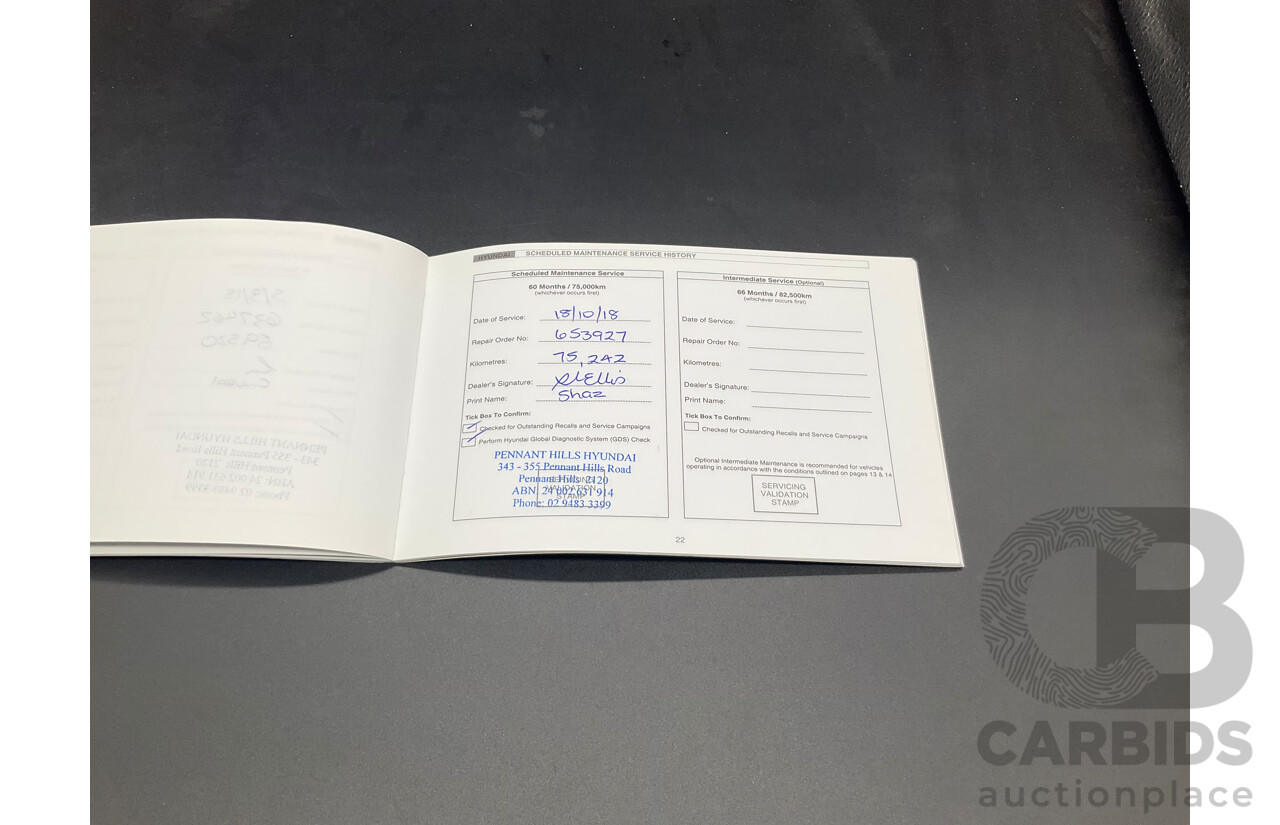 HYUNDAI SCHEDULED MAINTENANCE SERVICE HISTORY
Scheduled Maintenance Service
60 Months / 75,000km
(whichever occurs first)
Date of Service: 18/10/18
Repair Order No: 653927
Kilometres: 75,242
Dealer's Signature:
Print Name: Shaz
Tick Box To Confirm:
Checked for Outstanding Recalls and Service Campaigns
Perform Hyundai Global Diagnostic System (GDS) Check
PENNANT HILLS HYUNDAI
343 - 355 Pennant Hills Road
Pennant Hills 2120
ABN 24 002 631 914
Phone: 02 9483 3399
SERVICING
VALIDATION
STAMP
Intermediate Service (Optional)
66 Months / 82,500km
(whichever occurs first)
Date of Service:
Repair Order No:
Kilometres:
Dealer's Signature:
Print Name:
Tick Box To Confirm:
Checked for Outstanding Recalls and Service Campaigns
Optional Intermediate Maintenance is recommended for vehicles
operating in accordance with the conditions outlined on pages 13 & 14
SERVICING
VALIDATION
STAMP
22
CB
CARBIDS
auctionplace